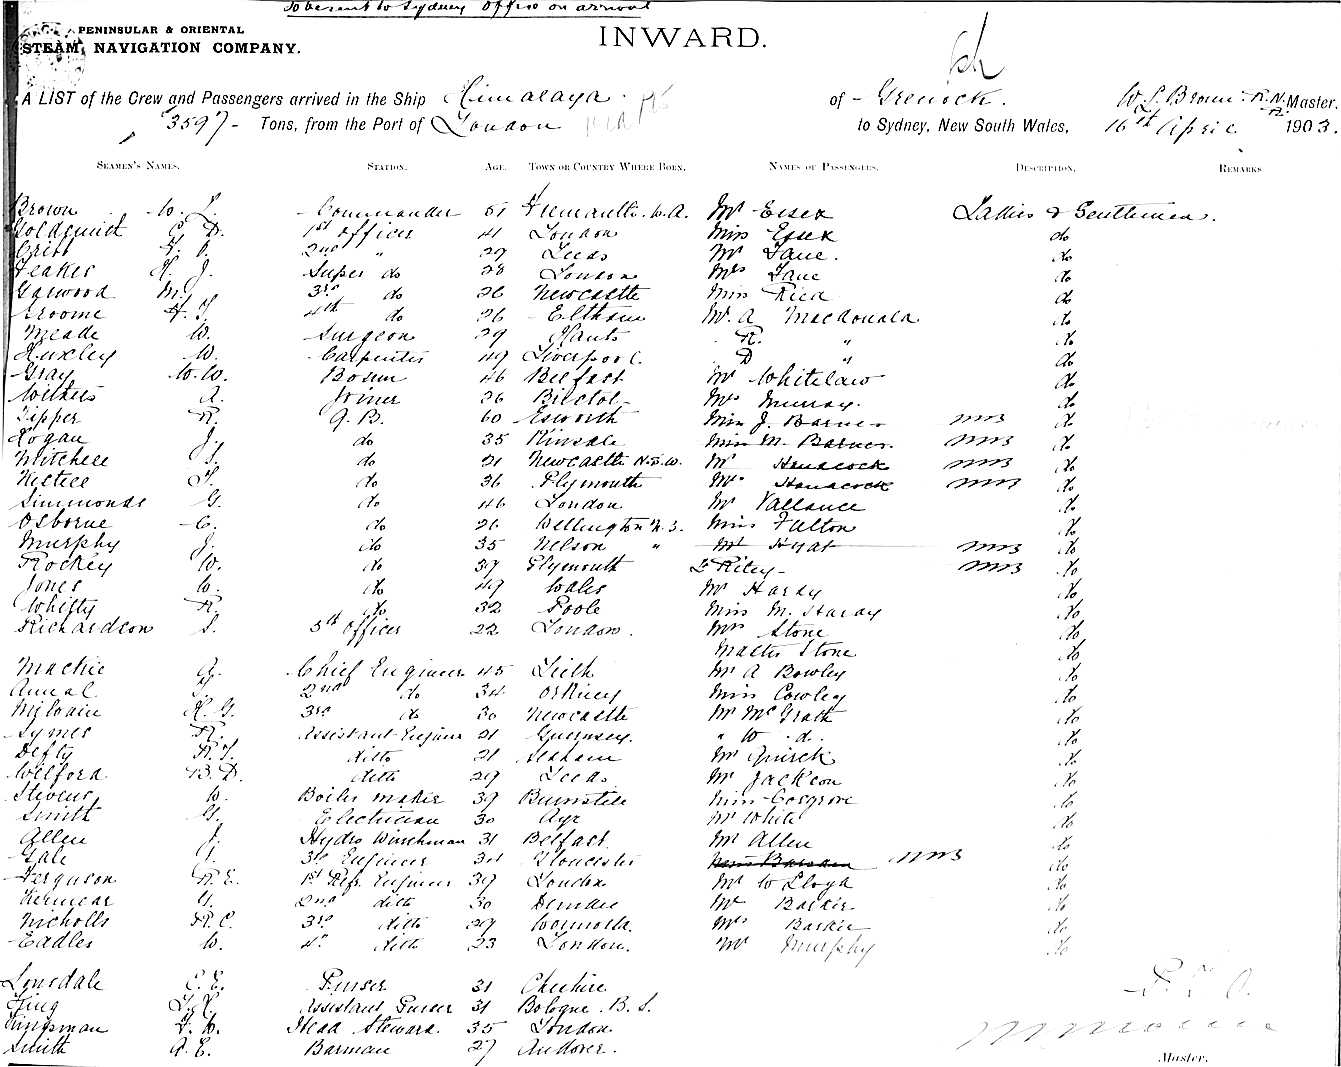 To be sent to Sydney Office on arrival
PENINSULAR & ORIENTAL
STEAM NAVIGATION COMPANY.
INWARD.
A LIST of the Crew and Passengers arrived in the Ship Himalaya of - Greenock. W. L. Brown R.N.R. Master.
3597 - Tons, from the Port of London to Sydney, New South Wales, 16th April 1903.
SEAMEN'S NAMES. STATION. AGE. TOWN OR COUNTRY WHERE BORN. NAMES OF PASSENGERS. DESCRIPTION. REMARKS
Brown W. L. Commander 51 Fremantle. W.A. Mr Essex Ladies & Gentlemen.
Goldsmith C. D. 1st Officer 41 London Miss Essex do
Cribb 2nd " 29 Leeds Mr Lane. do
Feakes H. J. Super do 28 London Mrs Lane do
Garwood M. 3rd do 26 Newcastle Miss do
Groome H. T. 4th do 26 Eltham Mr. A Macdonald do
Meade W. Surgeon 29 Hants R. " do
Huxley W. Carpenter 49 Liverpool D " do
Gray W. W. Bosun 46 Belfast Mr Whitelaw do
Withers A. Joiner 26 Bristol Mrs Murray. do
Tipper R. Q. M. 60 Mrs J. Barnes do
Logan J. do 35 Kinsale Miss M. Barnes do
Mitchell S. do 21 Newcastle N.S.W. Mr do
Kestell do 36 Plymouth Mrs do
Simmonds G. do 46 London Mr Vallance do
Osborne C. do 26 Wellington N.Z. Miss Fulton do
Murphy J. do 35 Nelson " Mr Hyat do
Rockey W. do 39 Plymouth Riley do
Jones W. do 49 Wales Mr Hardy do
Whitty R. do 32 Poole Miss M. Hardy do
Richardson S. 5th Officer 22 London. Mrs Stone do
Master Stone do
Mackie A. Chief Engineer 45 Leith Mr A Bowley do
Annal T. 2nd do 34 Orkney Miss Cowley do
McIlvain H. G. 3rd do 30 Newcastle Mr McGrath do
Symes R. Assistant Engineer 21 Guernsey. " W. do. do
Defty R. T. ditto 21 Seaham Mr Quirck do
Welford B. D. ditto 29 Leeds Mr Jackson do
Stevens W. Boiler maker 39 Miss Cosgrove do
Smith G. Electrician 30 Ayr Mr White do
Allen J. Hydro Winchman 31 Belfast Mr Allen do
Gale 3rd Engineer 34 Gloucester do
Ferguson R. E. 1st Refr. Engineer 39 London Mr W Lloyd do
2nd ditto 30 Dundee Mr Barker do
Nicholls R. C. 3rd ditto 29 Mrs Barker do
Eadles W. 4th ditto 23 London. Mr Murphy do
Lonsdale C. E. Purser 31 Cheshire P. T. O.
King Assistant Purser 31 Bologne. B. S.
Kingsman Head Steward. 35 London
Smith A. E. Barman 27 Andover.
Master.